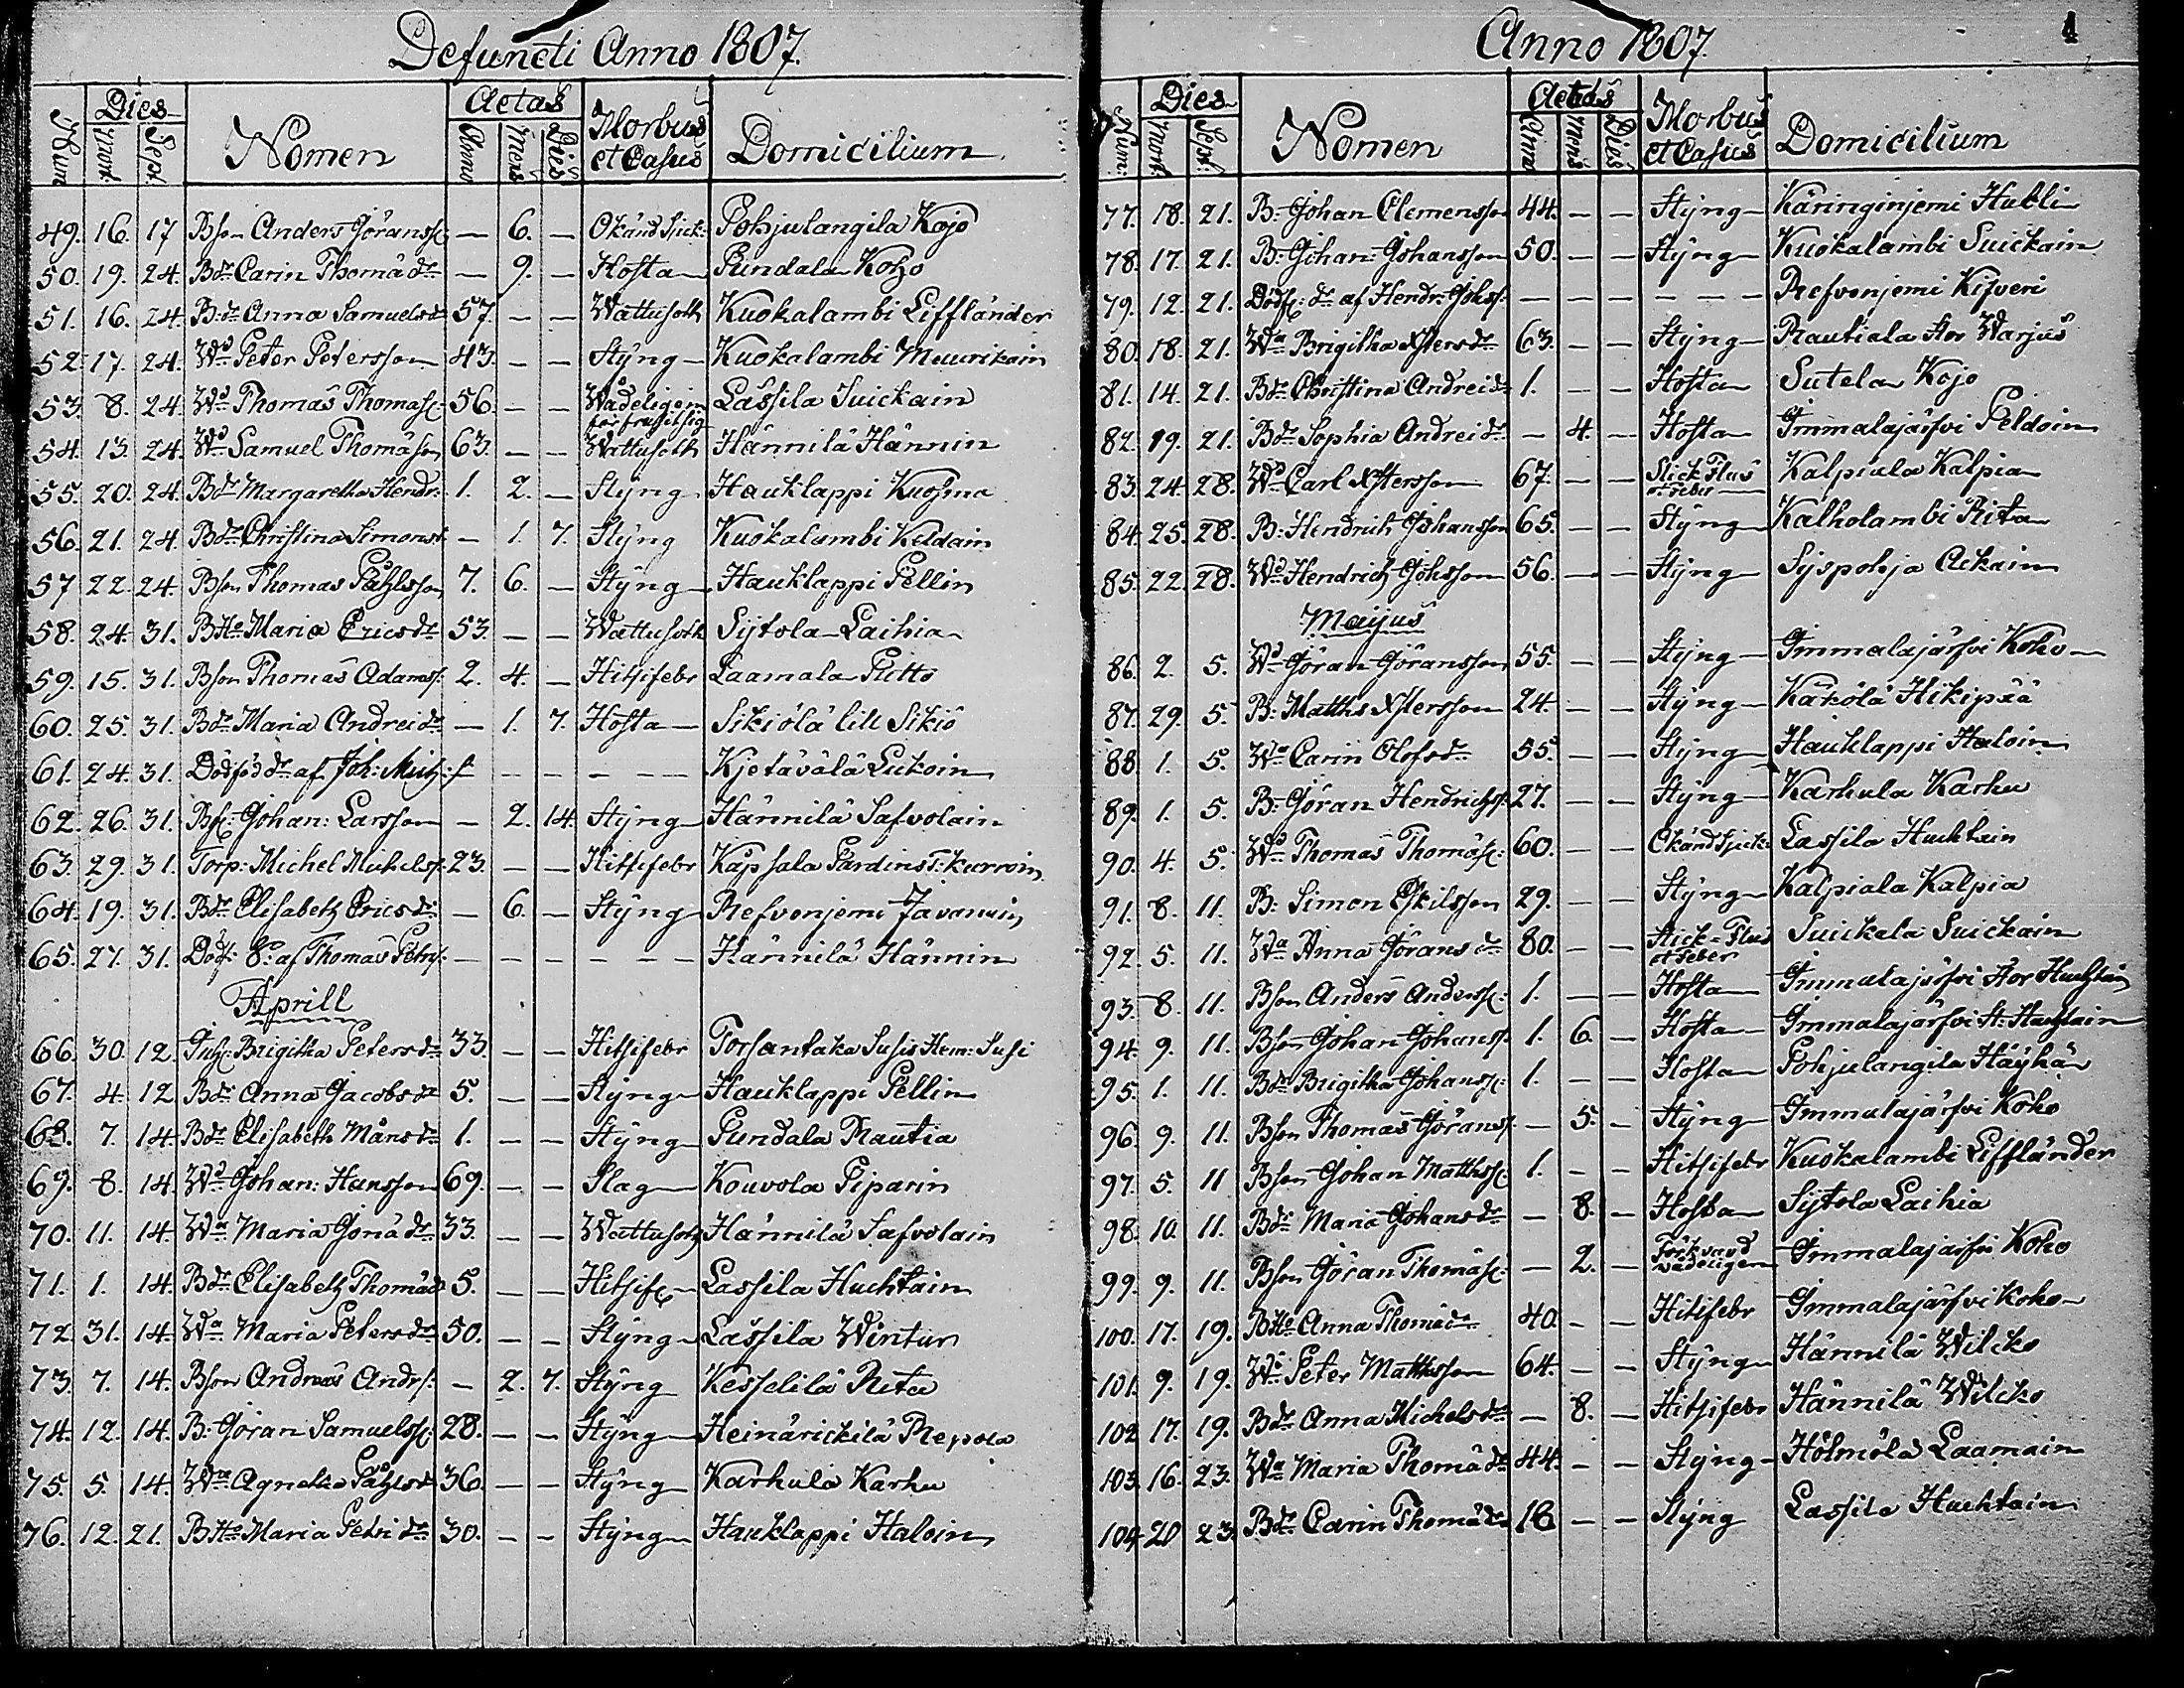 Defuncti Anno 1807.
Num Dies Mort. Sept. Nomen Aetas Anno Mens Dies Morbus et Casus Domicilium
49. 16. 17 Bson Anders Göranss: — 6. — Okänd Sjuk: Pohjulangila Kojo
50. 19. 24. Bdr Carin Thomædr — 9. — Hosta Pundala Koho
51. 16. 24. B:dr Anna Samuelsdr 57. — — Wattusoth Kuokalambi Liffländer
52. 17. 24. Wd Peter Petersson 43. — — Stÿng Kuokalambi Muurikain
53. 8. 24. Wd Thomas Thomas: 56. — — Wådeligen Lassila Suickain
54. 13. 24. Wd Samuel Thomäson 63. — — Wattusoth Hännilä Hännin
55. 20. 24. Bdr Margaretha Hendr: 1. 2. — Stÿng Hauklappi Kuosma
56. 21. 24. Bdr Christina Simonsd — 1. 7. Stÿng Kuokalambi Keldain
57 22. 24. Bson Thomas Påhlsson 7. 6. — Stÿng Hauklappi Pellin
58. 24. 31. BHo Maria Ericsdr 53. — — Wattusoth Sÿtola Laihia
59. 15. 31. Bson Thomas Adamss: 2. 4. — Hitsifebr Laamala Pitto
60. 25. 31. Bdr Maria Andreidr — 1. 7. Hosta Sikiölä lill Sikiö
61. 24. 31. Dödfödd dr af Joh: — — — — — Kjetävälä Lukoin
62. 26. 31. Bs: Johan: Larsson — 2. 14. Stÿng Hännilä Safvolain
63. 29. 31. Torp: Michel Michels: 23. — — Hitsifebr Kåpsala Pardins T: Kurvoin
64. 19. 31. Bdr Elisabeth Ericsdr — 6. — Stÿng Refvonjemi Javanain
65. 27. 31. Döds: af Thomas Petrs: — — — — — — Hännilä Hännin
Aprill
66. 30. 12. Brigitha Petersdr 33. — — Hitsifebr Torsantaka Susis Hem: Susi
67. 4. 12 Bdr Anna Jacobsdr 5. — — Stÿng Hauklappi Pellin
68. 7. 14 Bdr Elisabeth Månsdr 1. — — Stÿng Pundala Rautia
69. 8. 14. Wd Johan: Hansson 69. — — Slag Kouvola Piparin
70. 11. 14. Wa Maria Jonædr 33. — — Wattusoth Hännilä Safvolain
71. 1. 14. Bdr Elisabeth Thomæd 5. — — Hitsif: Lassila Huchtain
72 31. 14. Wa Maria Petersdr 50. — — Stÿng Lassila Wintur
73. 7. 14. Bson Andreas Andrs: — 2. 7. Stÿng Kesselilä Rita
74. 12. 14. B: Göran Samuelss: 28. — — Stÿng Heinärickilä Repoia
75. 5. 14. Wa Agnetha Påhlsd 36. — — Stÿng Karhula Karhu
76. 12. 21. BHo Maria Petridr 30. — — Stÿng Hauklappi Haloin
Anno 1807. 4
Num: Dies Mort. Sept: Nomen Aetas Anno Mens Dies Morbus et Casus Domicilium
77. 18. 21. B: Johan Clemensson 44. — — Stÿng Käringinjemi Hutli
78. 17. 21. B: Johan: Johansson 50. — — Stÿng Kuokalambi Suickain
79. 12. 21. Dödf: dr af Hendr: Johs: — — — — — — Refvonjemi Kifveri
80. 18. 21. Wa Brigitha Xstersdr 63. — — Stÿng Rautiala Stor Warjus
81. 14. 21. Bdr Christina Andreidr 1. — — Hosta Sutela Kojo
82. 19. 21. Bdr Sophia Andreidr — 4. — Hosta Immalajärfvi Peldoin
83. 24. 28. Wd Carl Xstersson 67. — — Stick Flus et Feber Kalpiala Kalpia
84. 25. 28. B: Hendrich Johansson 65. — — Stÿng Kalholambi Rita
85. 22. 28. Wd Hendrich Johsson 56. — — Stÿng Syspohja Ackain
Maijus
86. 2. 5. Wd Göran Göransson 55. — — Stÿng Immalajärfvi Koho
87. 29. 5. B: Matths Xstersson 24. — — Stÿng Käkölä Hikipää
88. 1. 5. Wa Carin Olofsdr 55. — — Stÿng Hauklappi Haloin
89. 1. 5. B: Göran Hendrichss: 27. — — Stÿng Karhula Karhu
90. 4. 5. Wd Thomas Thomäs: 60. — — Okänd Sjuk: Lassila Huchtain
91. 8. 11. B: Simon Eskilsson 29. — — Stÿng Kalpiala Kalpia
92. 5. 11. Wa Anna Göransdr 80. — — Stick-Flus et Feber Suickala Suickain
93. 8. 11. Bson Anders Anderss: 1. — — Hosta Immalajärfvi Stor Huchtain
94. 9. 11. Bson Johan Johanss: 1. 6. — Hosta Immalajärfvi St: Huchtain
95. 1. 11. Bdr Brigitha Johanss: 1. — — Hosta Pohjulangila Häÿhä
96. 9. 11. Bson Thomas Görans: — 5. — Stÿng Immalajärfvi Koho
97. 5. 11 Bson Johan Matthss: 1. — — Hitsifebr Kuokalambi Liffländer
98. 10. 11. Bdr Maria Johansdr — 8. — Hosta Sÿtola Laihia
99. 9. 11. Bson Göran Thomäs: — 2. — Förkvavd wådeligen Immalajärfvi Koho
100. 17. 19. BHo Anna Thomædr 40. — — Hitsifebr Immalajärfvi Koho
101. 9. 19. Wd Peter Matthsson 64. — — Stÿng Hännilä Wilcko
102 17. 19. Bdr Anna Michelsdr — 8. — Hitsifebr Hännilä Wilcko
103. 16. 23. Wa Maria Thomædr 44. — — Stÿng Hölmölä Laamain
104. 20 23. Bdr Carin Thomædr 16 — — Stÿng Lassila Huchtain